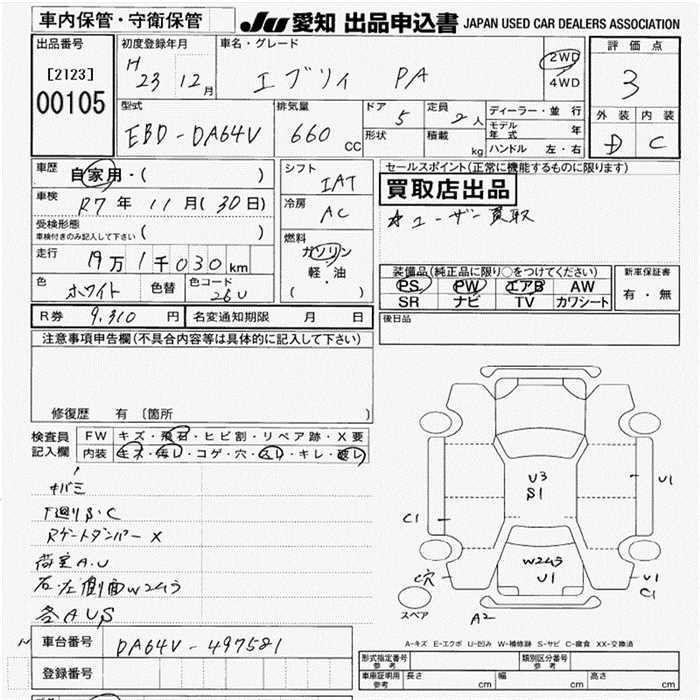 車内保管・守衛保管
JU 愛知 出品申込書 JAPAN USED CAR DEALERS ASSOCIATION
出品番号
[2123]
00105
初度登録年月
H 23 12月
車名・グレード
エブリィ PA
2WD
4WD
評価点
3
外装 内装
D C
型式
EBD-DA64V
排気量
660 CC
ドア 5
形状
定員 2人
積載 kg
ディーラー・並行
モデル年式 年
ハンドル 左・右
車歴 自家用・( )
車検 R7年 11月(30日)
受検形態
車検付きのみ記入して下さい ( )
走行 19万1千030km
色 ホワイト 色替 色コード 26U
シフト
IAT
冷房
AC
燃料
ガソリン
軽・油
( )
セールスポイント(正常に機能するものに限ります)
買取店出品
☆ユーザー買取
装備品(純正品に限り○をつけてください)
PS PW エアB AW
SR ナビ TV カワシート
新車保証書
有・無
R券 9,310 円 名変通知期限 月 日
後日品
注意事項申告欄(不具合内容等は具体的に記入して下さい)
修復歴 有 [箇所 ]
検査員記入欄
FW キズ・飛石・ヒビ割・リペア跡・X要
内装 キズ・汚レ・コゲ・穴・スレ・キレ・破レ
キバミ
下廻りS・C
RゲートダンパーX
荷室A.U
右・左側面W2ムラ
各AUS
U3
S1
U1
C1
W2ムラ
U1
C穴
U1
C1
スペア
A2
A-キズ E-エクボ U-凹み W-補修跡 S-サビ C-腐食 XX-交換済
車台番号 DA64V-497581
登録番号
形式指定番号 参考
類別区分番号 参考
車庫証明用 参考 長さ cm 幅 cm 高さ cm